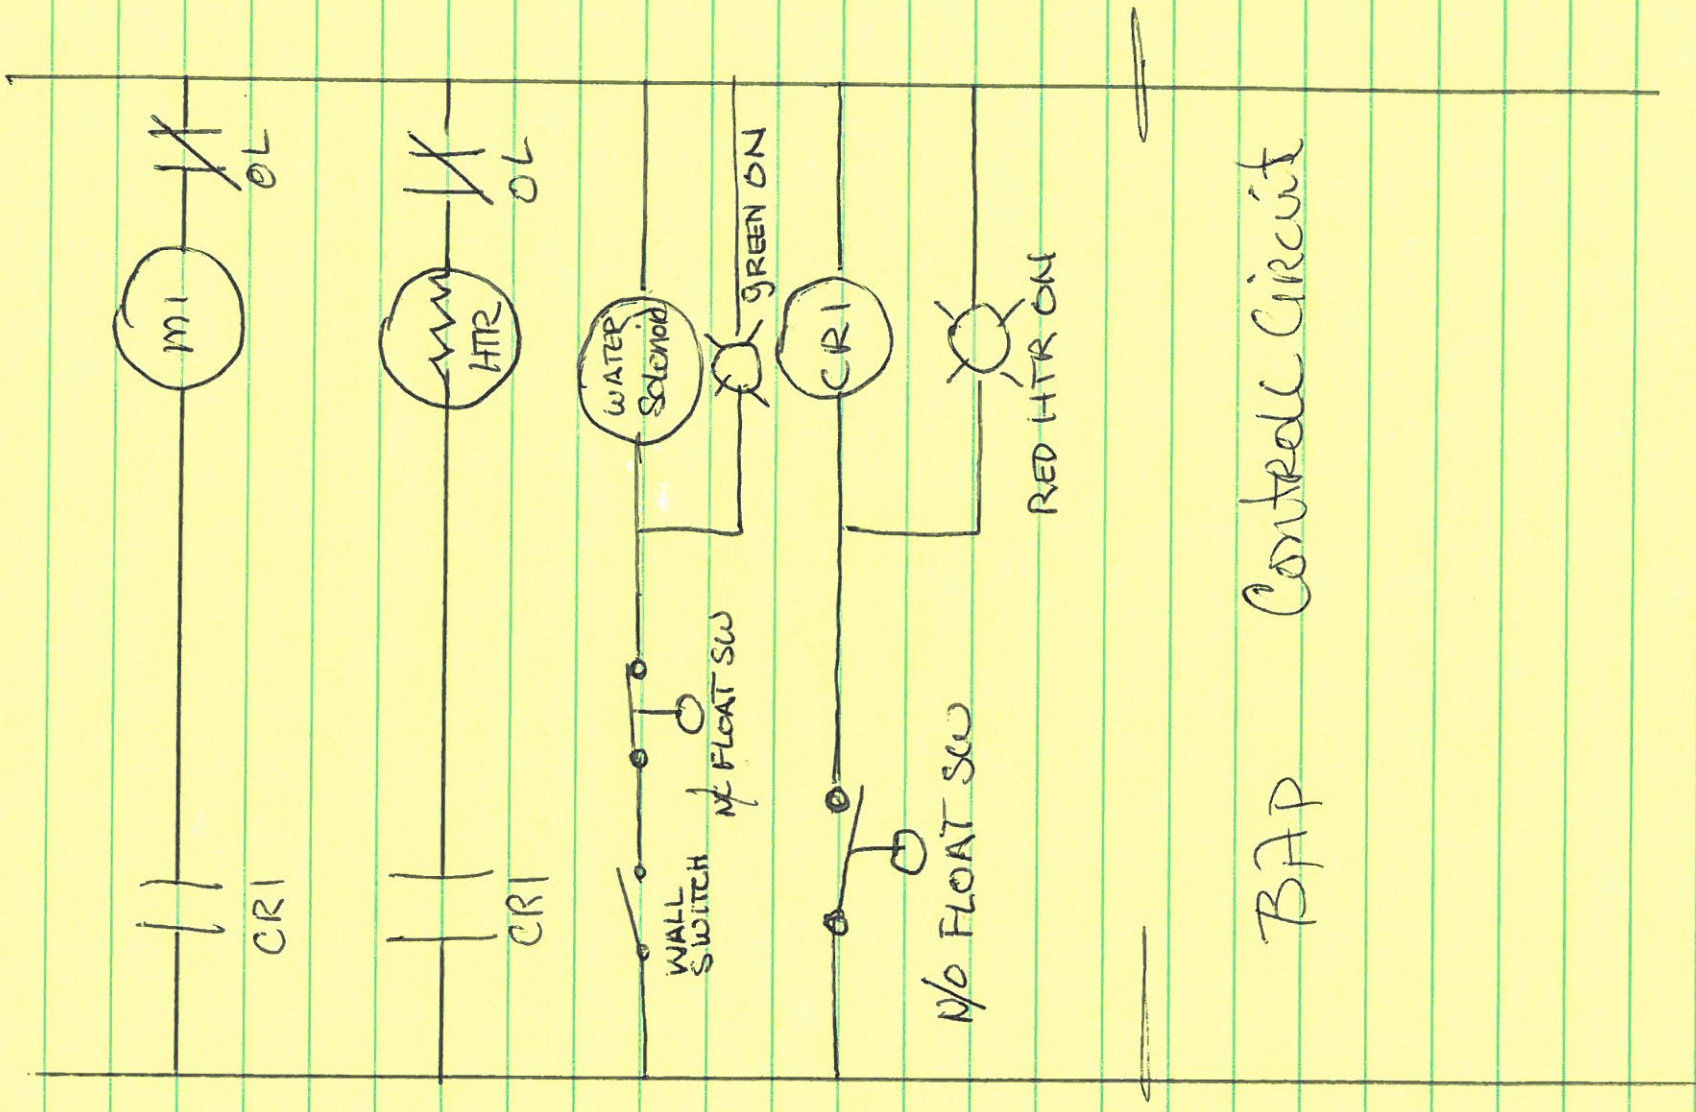 CR1
M1
OL
CR1
HTR
OL
WALL
SWITCH
N/C FLOAT SW
WATER
Solenoid
gREEN ON
N/O FLOAT SW
CR1
RED HTR ON
BAP Control Circuit